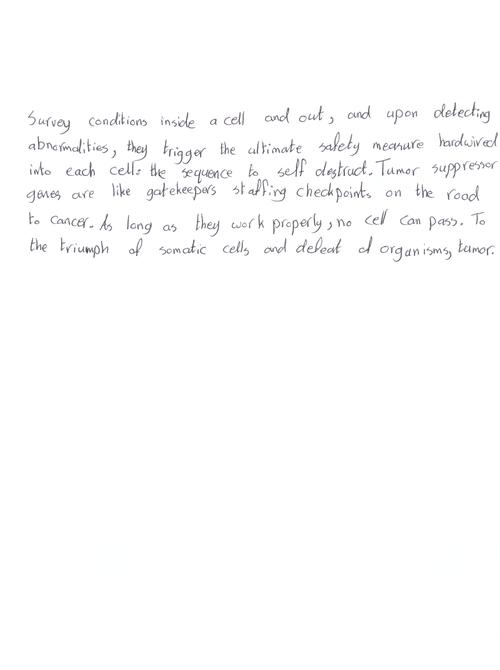 Survey conditions inside a cell and out, and upon detecting
abnormalities, they trigger the ultimate safety measure hardwired
into each cell: the sequence to self destruct. Tumor suppressor
genes are like gatekeepers staffing checkpoints on the road
to cancer. As long as they work properly, no cell can pass. To
the triumph of somatic cells and defeat of organisms, tumor.